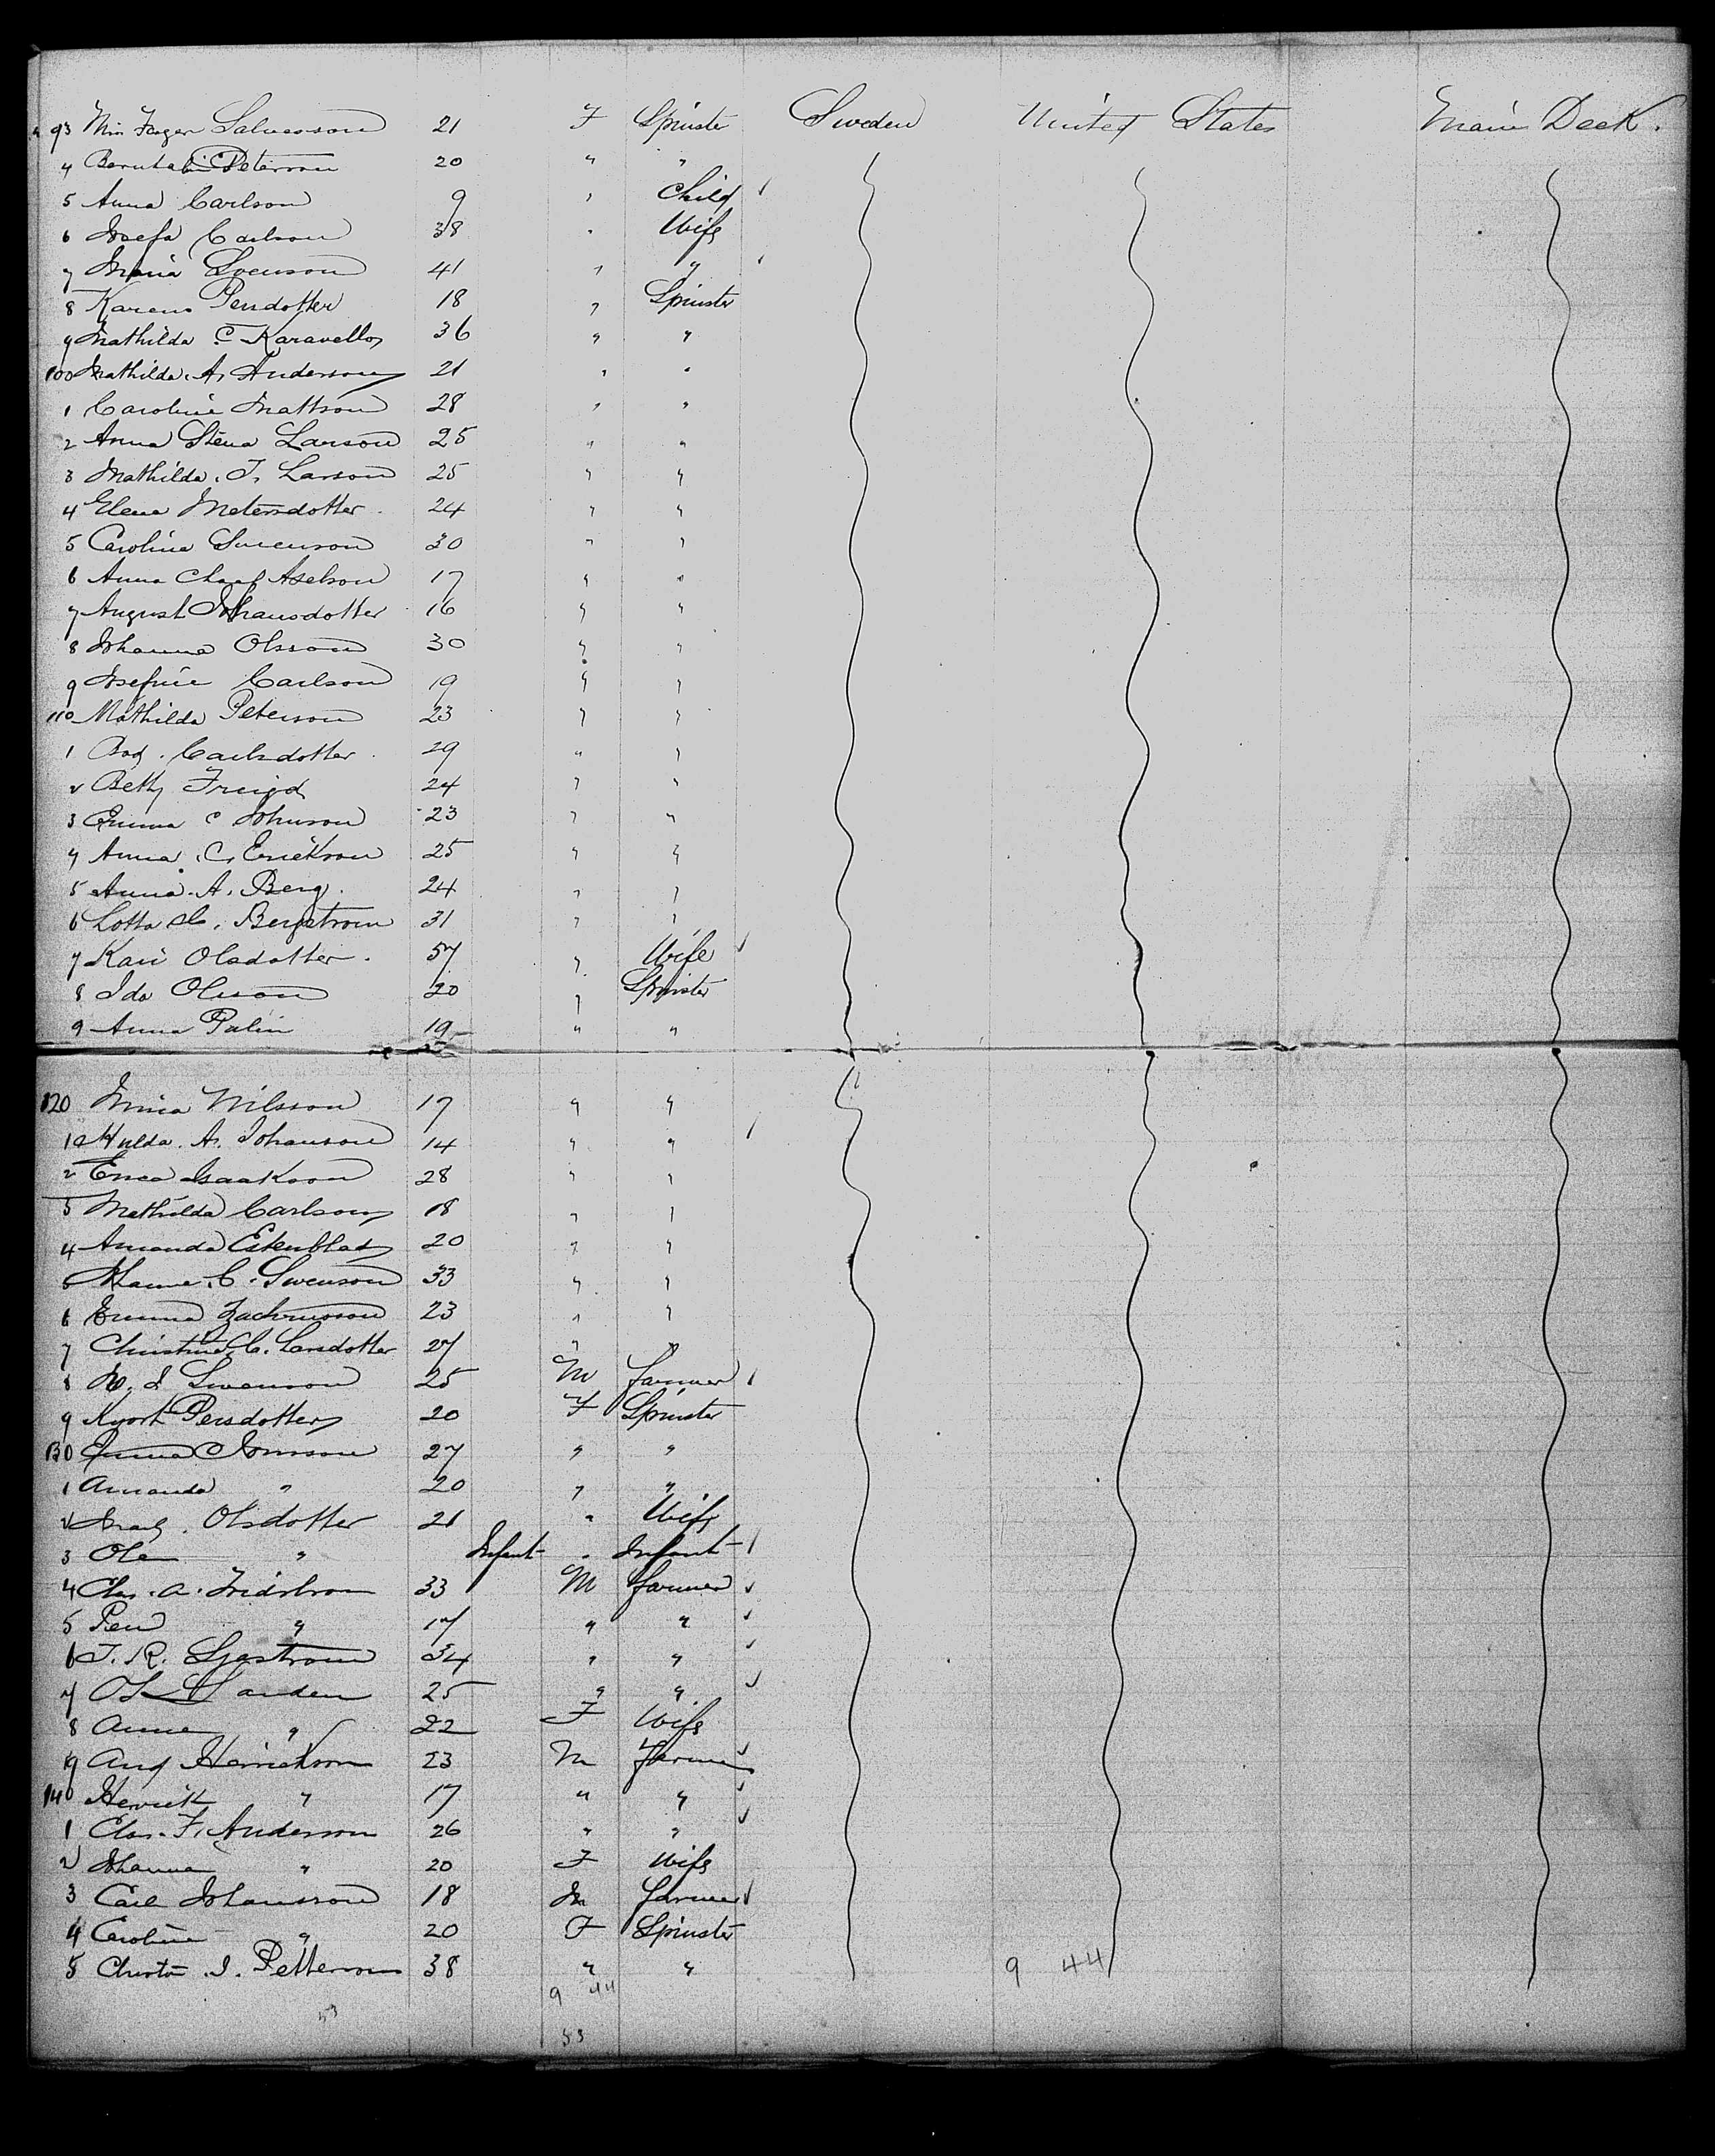 93 Salvesson 21 F Spinster Sweden United States Main Deck.
4 Peterson 20 " "
5 Anna Carlson 9 " Child
6 Josefa Carlson 38 " Wife
7 Maria Svenson 41 " "
8 Persdotter 18 " Spinster
9 Mathilda C Karavello 36 " "
100 Mathilda A. Anderson 21 " "
1 Caroline Mattson 28 " "
2 Anna Stena Larson 25 " "
3 Mathilda J. Larson 25 " "
4 Elena 24 " "
5 Carolina Swenson 30 " "
6 Anna Axelson 17 " "
7 August Johansdotter 16 " "
8 Johanna Olsson 30 " "
9 Josefine Carlson 19 " "
110 Mathilda Peterson 23 " "
1 Carlsdotter 29 " "
2 Betty 24 " "
3 Emma C Johnson 23 " "
4 Anna C. Erickson 25 " "
5 Anna A. Berg. 24 " "
6 Lotta C. Bergstrom 31 " "
7 Kari Olsdotter. 57 " Wife
8 Ida Olsson 20 " Spinster
9 Anna Palin 19 " "
120 Mina Nilsson 17 " "
1 Hulda A. Johanson 14 " "
2 Isaakson 28 " "
3 Mathilda Carlson 18 " "
4 Amanda Ekenblad 20 " "
5 Hanna C. Swenson 33 " "
6 Emma Zachrisson 23 " "
7 Christina C. Larsdotter 27 " "
8 Swenson 25 M farmer
9 Persdotter 20 F Spinster
130 27 " "
1 Amanda " 20 " "
2 Olsdotter 21 " Wife
3 Ole " Infant " Infant
4 Chs. A. Fridstrom 33 M farmer
5 " 17 " "
6 J. R. Sjostrom 34 " "
7 25 " "
8 Anna " 22 F Wife
9 Aug Henrickson 23 M farmer
140 Henrick " 17 " "
1 Chs. F. Anderson 26 " "
2 Johanna " 20 F Wife
3 Carl Johansson 18 M farmer
4 Caroline " 20 F Spinster
5 J. Petterson 38 " " 9 44
9 44
53
53